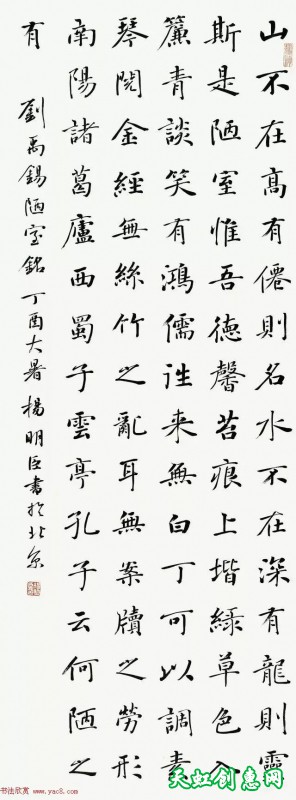 山不在高有僊則名水不在深有龍則靈
斯是陋室惟吾德馨苔痕上堦綠草色入
簾青談笑有鴻儒往来無白丁可以調素
琴閱金經無絲竹之亂耳無案牘之勞形
南陽諸葛廬西蜀子雲亭孔子云何陋之
有
劉禹錫陋室銘丁酉大暑楊明臣書於北京
书法欣赏 www.yac8.com
天虹创意网